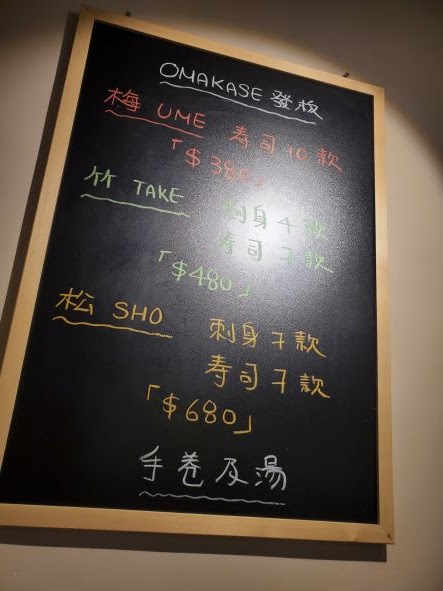 OMAKASE 發板
梅 UME 寿司 10 款
「$380」
竹 TAKE 刺身 4 款
寿司 7 款
「$480」
松 SHO 刺身 7 款
寿司 7 款
「$680」
手巻及湯